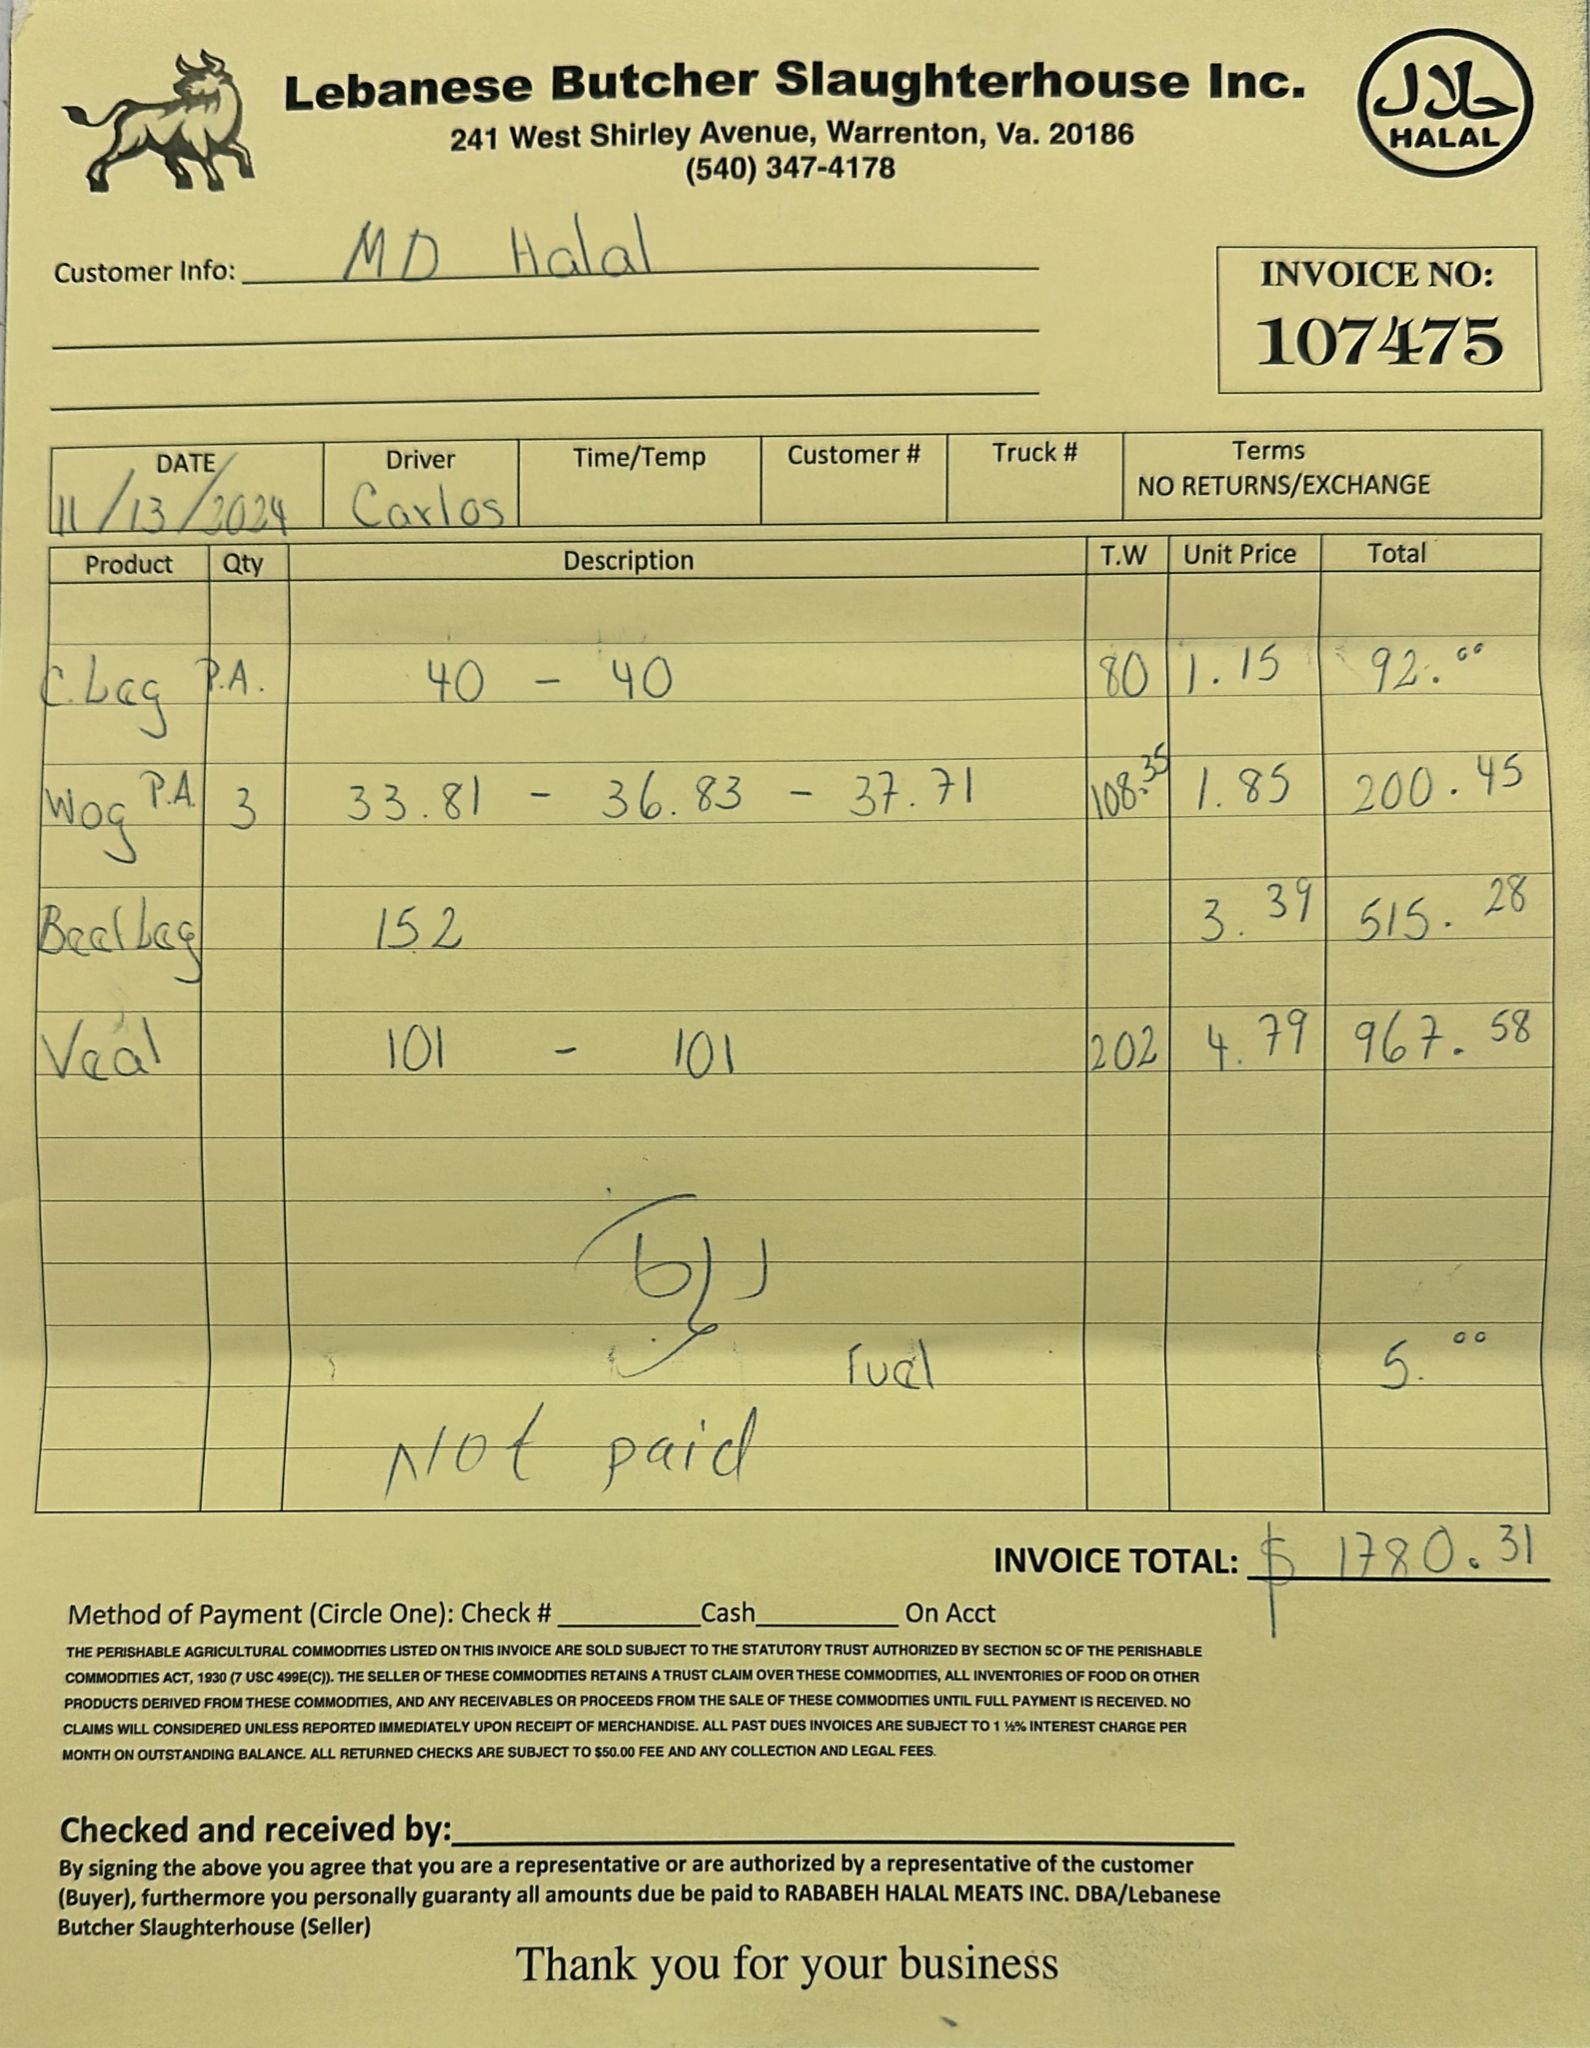 Lebanese Butcher Slaughterhouse Inc.
241 West Shirley Avenue, Warrenton, Va. 20186
(540) 347-4178
حلال
HALAL
Customer Info: MD Halal
INVOICE NO:
107475
DATE Driver Time/Temp Customer # Truck # Terms
NO RETURNS/EXCHANGE
11/13/2024 Carlos
Product Qty Description T.W Unit Price Total
C.Leg P.A. 40 - 40 80 1.15 92.00
Wog P.A. 3 33.81 - 36.83 - 37.71 108.35 1.85 200.45
Beef Leg 152 3.39 515.28
Veal 101 - 101 202 4.79 967.58
Fuel 5.00
Not paid
INVOICE TOTAL: $ 1780.31
Method of Payment (Circle One): Check # Cash On Acct
THE PERISHABLE AGRICULTURAL COMMODITIES LISTED ON THIS INVOICE ARE SOLD SUBJECT TO THE STATUTORY TRUST AUTHORIZED BY SECTION 5C OF THE PERISHABLE
COMMODITIES ACT, 1930 (7 USC 499E(C)). THE SELLER OF THESE COMMODITIES RETAINS A TRUST CLAIM OVER THESE COMMODITIES, ALL INVENTORIES OF FOOD OR OTHER
PRODUCTS DERIVED FROM THESE COMMODITIES, AND ANY RECEIVABLES OR PROCEEDS FROM THE SALE OF THESE COMMODITIES UNTIL FULL PAYMENT IS RECEIVED. NO
CLAIMS WILL CONSIDERED UNLESS REPORTED IMMEDIATELY UPON RECEIPT OF MERCHANDISE. ALL PAST DUES INVOICES ARE SUBJECT TO 1 ½% INTEREST CHARGE PER
MONTH ON OUTSTANDING BALANCE. ALL RETURNED CHECKS ARE SUBJECT TO $50.00 FEE AND ANY COLLECTION AND LEGAL FEES.
Checked and received by:
By signing the above you agree that you are a representative or are authorized by a representative of the customer
(Buyer), furthermore you personally guaranty all amounts due be paid to RABABEH HALAL MEATS INC. DBA/Lebanese
Butcher Slaughterhouse (Seller)
Thank you for your business